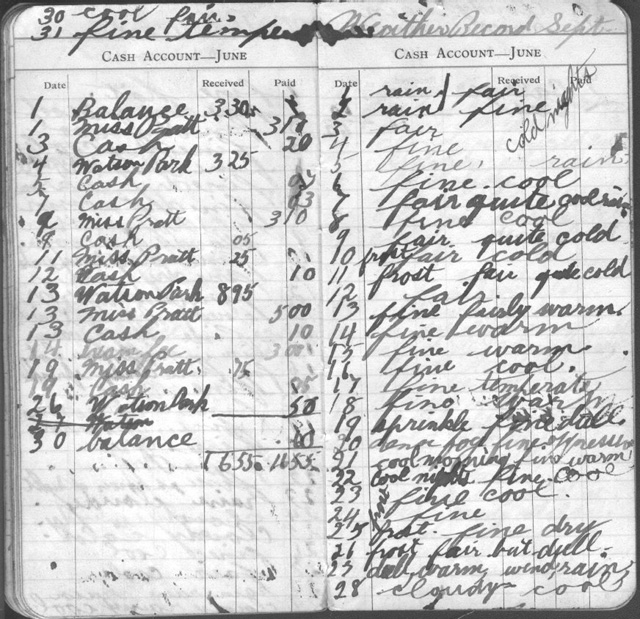 30 cool fair
31 fine
CASH ACCOUNT—JUNE
Date Received Paid
1 Balance 330
1 Miss Pratt 310
3 Cash 20
4 Watson Park 325
5 Cash
7 Cash 03
Miss Pratt 310
8 Cash 05
11 Miss Pratt 25
12 Cash 10
13 Watson Park 895
13 Miss Pratt 500
13 Cash 10
14 300
19 Miss Pratt 75
19 Cash
26 Watson Park 50
Watson
30 balance
1655 1655
Weather Record Sept.
CASH ACCOUNT—JUNE
Date Received Paid
cold nights
1 rain, fair
2 rain fine
3 fair
4 fine
5 fine, rain
6 fine cool
7 fair quite cool rain
8 fine cool
9 fair quite cold
10 frost fair cold
11 frost fair quite cold
12 fair
13 fine fairly warm
14 fine warm
15 fine warm
16 fine cool.
17 fine temperate
18 fine warm
19 sprinkle fine dull.
20 fog fine
21 cool morning fine warm
22 cool night fine cool
23 fine cool.
24 fine
25 frost. fine dry
26 frost fair but dull.
27 dull warm, wind, rain
28 cloudy cool